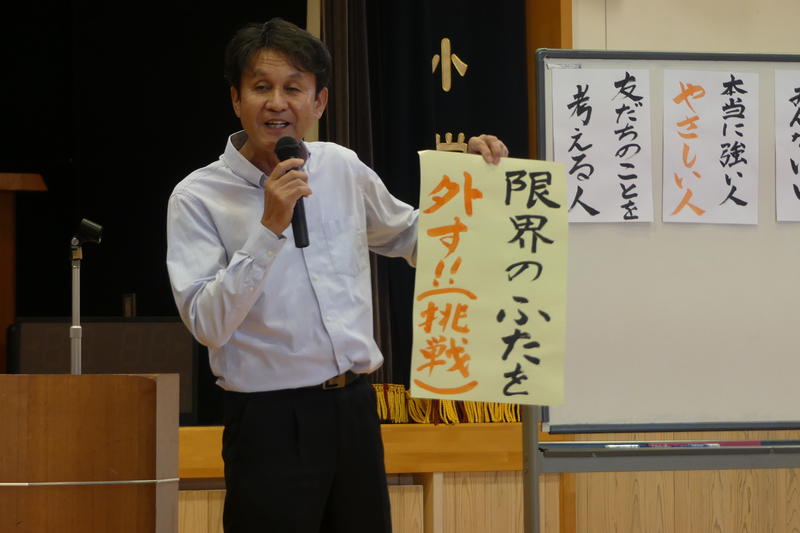 小
限界のふたを
外す!!(挑戦)
友だちのことを
考える人
本当に強い人
やさしい人